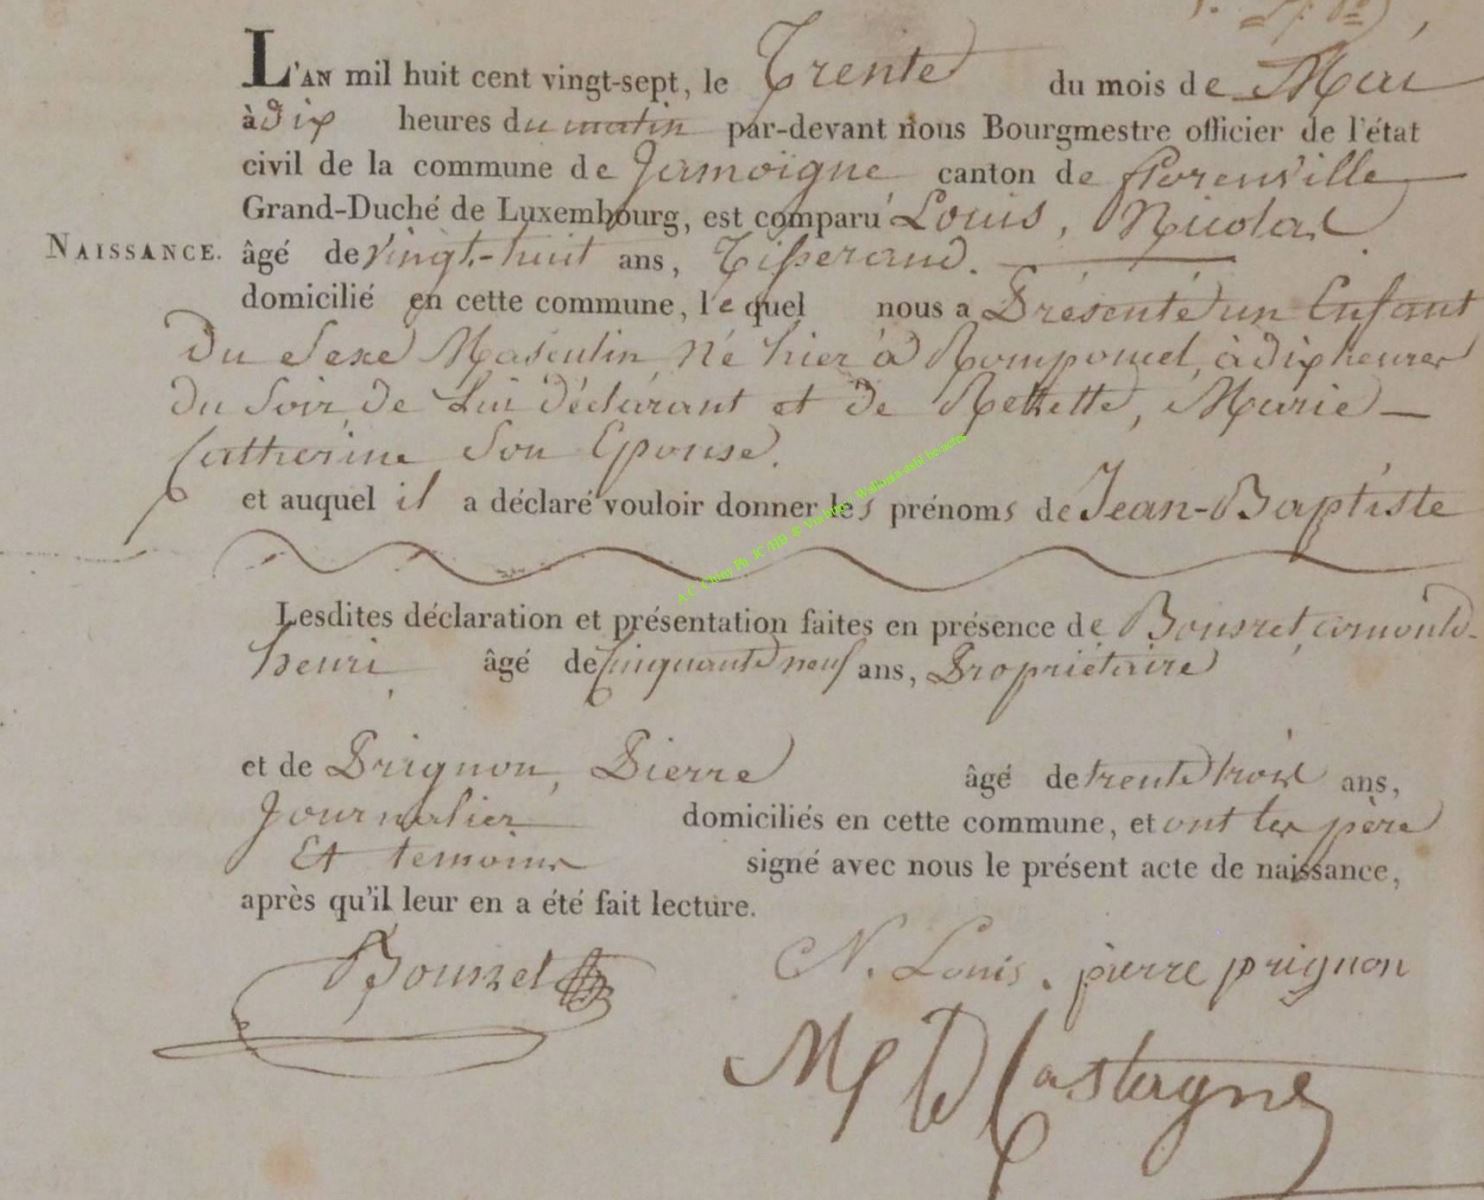 L'AN mil huit cent vingt-sept, le Trente du mois de Mai
à dix heures du matin par-devant nous Bourgmestre officier de l'état
civil de la commune de Jamoigne canton de florenville
Grand-Duché de Luxembourg, est comparu Louis, Nicolas
NAISSANCE. âgé de Vingt-huit ans, Tisserand.
domicilié en cette commune, lequel nous a Présenté un Enfant
Du Sexe Masculin, Né hier à Romponcel, à dix heures
du Soir, De Lui déclarant et de Rettette, Marie
Catherine Son Epouse.
et auquel il a déclaré vouloir donner les prénoms de Jean-Baptiste
Lesdites déclaration et présentation faites en présence de Bonsret, arnould
henri, âgé de Cinquante neuf ans, Propriétaire
et de Prignon, Pierre âgé de trente trois ans,
Journalier domiciliés en cette commune, et ont les père
Et temoins signé avec nous le présent acte de naissance,
après qu'il leur en a été fait lecture.
N. Louis. pierre prignon
Castagne